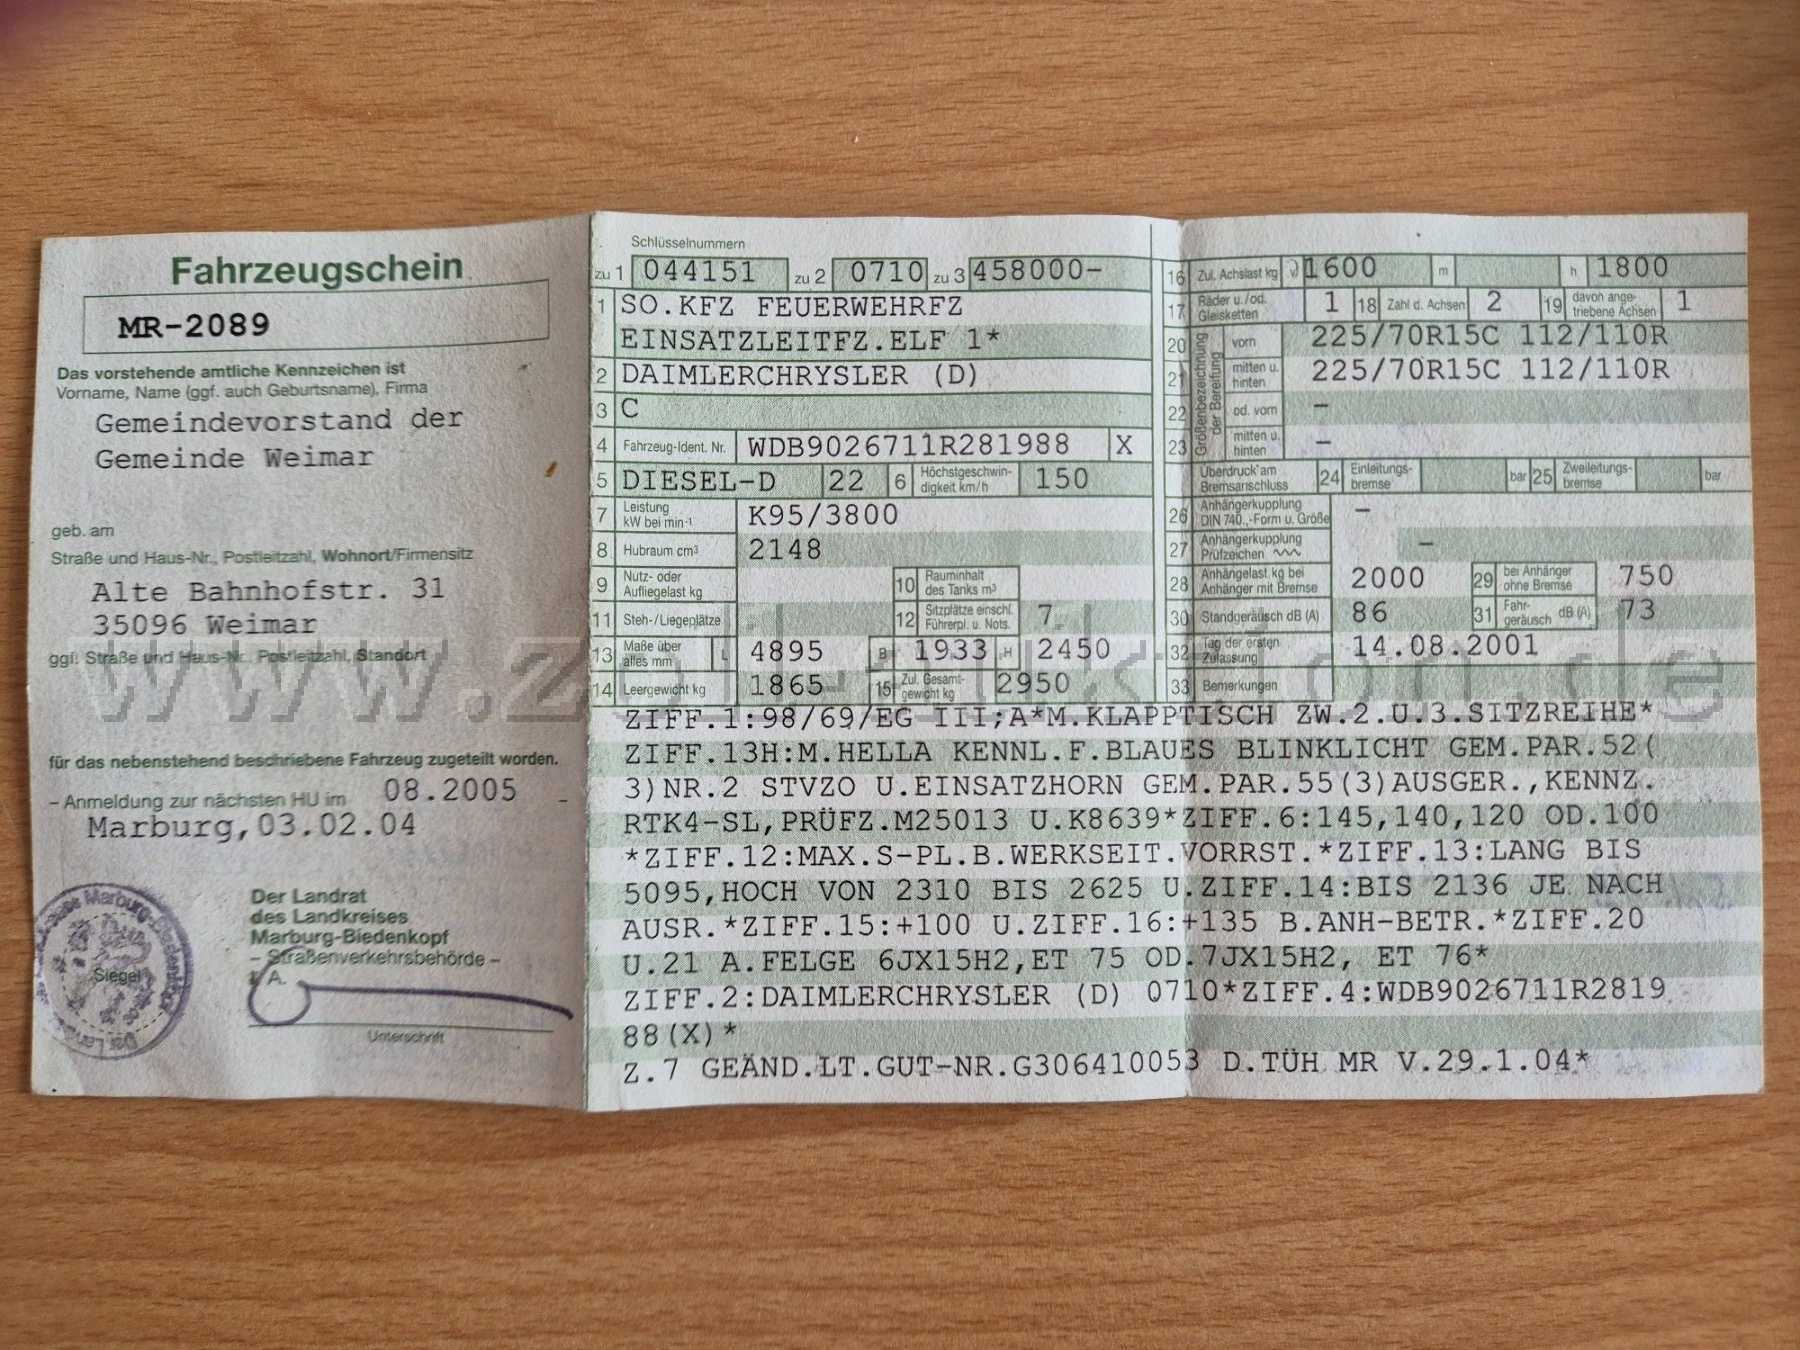 Fahrzeugschein
MR-2089
Das vorstehende amtliche Kennzeichen ist
Vorname, Name (ggf. auch Geburtsname), Firma
Gemeindevorstand der
Gemeinde Weimar
geb. am
Straße und Haus-Nr., Postleitzahl, Wohnort/Firmensitz
Alte Bahnhofstr. 31
35096 Weimar
ggf. Straße und Haus-Nr., Postleitzahl, Standort
für das nebenstehend beschriebene Fahrzeug zugeteilt worden.
– Anmeldung zur nächsten HU im 08.2005 –
Marburg,03.02.04
Der Landrat
des Landkreises
Marburg-Biedenkopf
– Straßenverkehrsbehörde –
I. A.
Siegel
Unterschrift
Schlüsselnummern
zu 1 044151 zu 2 0710 zu 3 458000-
1 SO.KFZ FEUERWEHRFZ
EINSATZLEITFZ.ELF 1*
2 DAIMLERCHRYSLER (D)
3 C
4 Fahrzeug-Ident. Nr. WDB9026711R281988 X
5 DIESEL-D 22 6 Höchstgeschwin-digkeit km/h 150
7 Leistung kW bei min-1 K95/3800
8 Hubraum cm³ 2148
9 Nutz- oder Aufliegelast kg 10 Rauminhalt des Tanks m³
11 Steh-/Liegeplätze 12 Sitzplätze einschl. Führerpl. u. Nots. 7
13 Maße über alles mm L 4895 B 1933 H 2450
14 Leergewicht kg 1865 15 Zul. Gesamt-gewicht kg 2950
16 Zul. Achslast kg v 1600 m h 1800
17 Räder u./od. Gleisketten 1 18 Zahl d. Achsen 2 19 davon ange-triebene Achsen 1
Größenbezeichnung der Bereifung
20 vorn 225/70R15C 112/110R
21 mitten u. hinten 225/70R15C 112/110R
22 od. vorn –
23 mitten u. hinten –
Überdruck am Bremsanschluss 24 Einleitungs-bremse bar 25 Zweileitungs-bremse bar
26 Anhängerkupplung DIN 740.,-Form u. Größe –
27 Anhängerkupplung Prüfzeichen –
28 Anhängelast kg bei Anhänger mit Bremse 2000 29 bei Anhänger ohne Bremse 750
30 Standgeräusch dB (A) 86 31 Fahr-geräusch dB (A) 73
32 Tag der ersten Zulassung 14.08.2001
33 Bemerkungen
ZIFF.1:98/69/EG III;A*M.KLAPPTISCH ZW.2.U.3.SITZREIHE*
ZIFF.13H:M.HELLA KENNL.F.BLAUES BLINKLICHT GEM.PAR.52(
3)NR.2 STVZO U.EINSATZHORN GEM.PAR.55(3)AUSGER.,KENNZ.
RTK4-SL,PRÜFZ.M25013 U.K8639*ZIFF.6:145,140,120 OD.100
*ZIFF.12:MAX.S-PL.B.WERKSEIT.VORRST.*ZIFF.13:LANG BIS
5095,HOCH VON 2310 BIS 2625 U.ZIFF.14:BIS 2136 JE NACH
AUSR.*ZIFF.15:+100 U.ZIFF.16:+135 B.ANH-BETR.*ZIFF.20
U.21 A.FELGE 6JX15H2,ET 75 OD.7JX15H2, ET 76*
ZIFF.2:DAIMLERCHRYSLER (D) 0710*ZIFF.4:WDB9026711R2819
88(X)*
Z.7 GEÄND.LT.GUT-NR.G306410053 D.TÜH MR V.29.1.04*
www.zoll-auktion.de